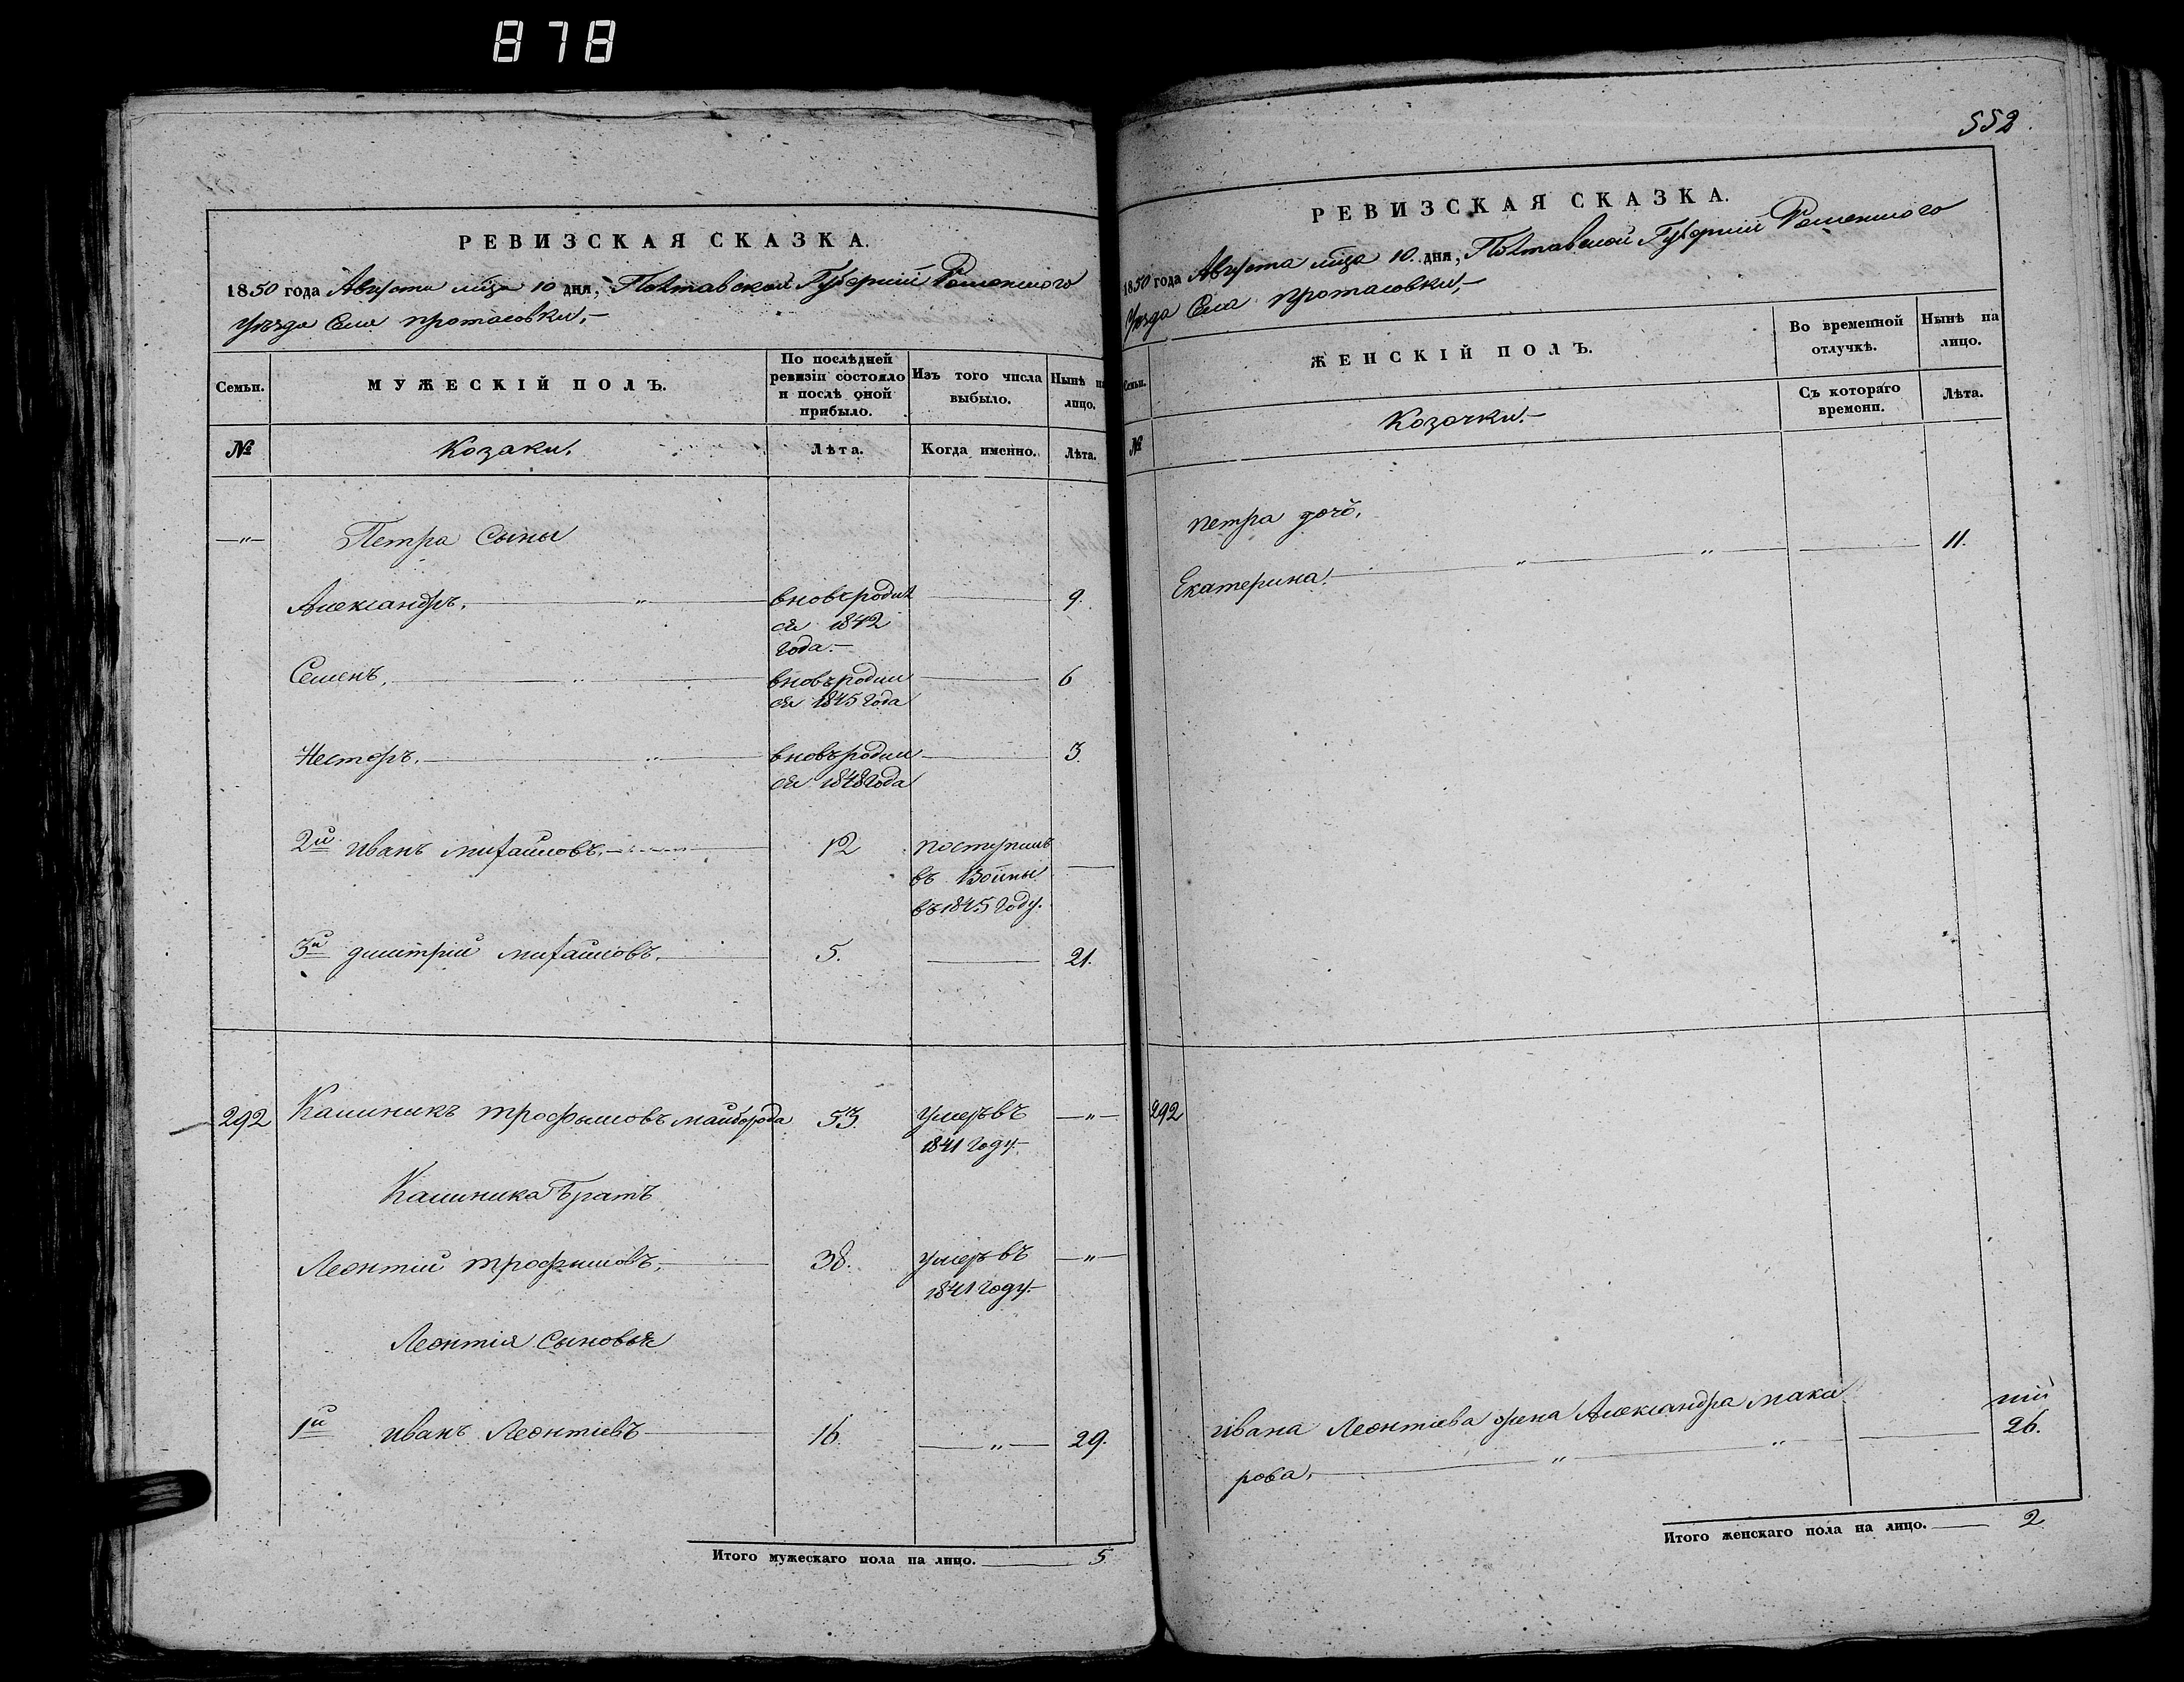 878
РЕВИЗСКАЯ СКАЗКА.
1850 года Августа мца 10 дня, Полтавской Губернии Роменского
Уезда Села Протасовки,-
Семьи.
МУЖЕСКІЙ ПОЛЪ.
По послѣдней ревизіи состояло и послѣ оной прибыло.
Изъ того числа выбыло.
Нынѣ на лицо.
№
Козаки.
Лѣта.
Когда именно.
Лѣта.
Петра Сыны
Александръ. вновъ родил 9.
ся 1842
года.-
Семенъ. вновъ роди 6
ся 1845 года
Несторъ. вновъ роди 3.
ся 1848 года
2й иванъ михайловъ. 12 поступилъ
въ
въ 1845 году.
3й дмитрій михайловъ. 5. 21.
292 Калиникъ трофымовъ майборода 53. умеръ въ
1841 году.-
Калиника братъ
Леонтій трофимовъ, 38. умеръ въ
1841 году.-
Леонтія Сыновья
1й иванъ Леонтіевъ 16. 29.
Итого мужескаго пола на лицо. 5.
552.
РЕВИЗСКАЯ СКАЗКА.
1850 года Августа мца 10. дня, Полтавской Губерній Роменского
Уезда Села протасовки,-
Семьи.
ЖЕНСКІЙ ПОЛЪ.
Во временной отлучкѣ.
Нынѣ на лицо.
№
Козачки.-
Съ котораго времени.
Лѣта.
петра дочь.
Екатерина. 11.
292
ивана Леонтіева жена Александра мака
рова. 26.
Итого женскаго пола на лицо. 2